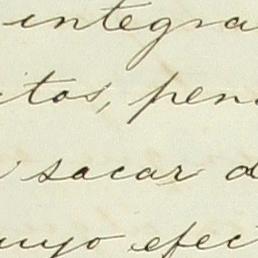 integra
itos, pen
sacar d
uyo efec